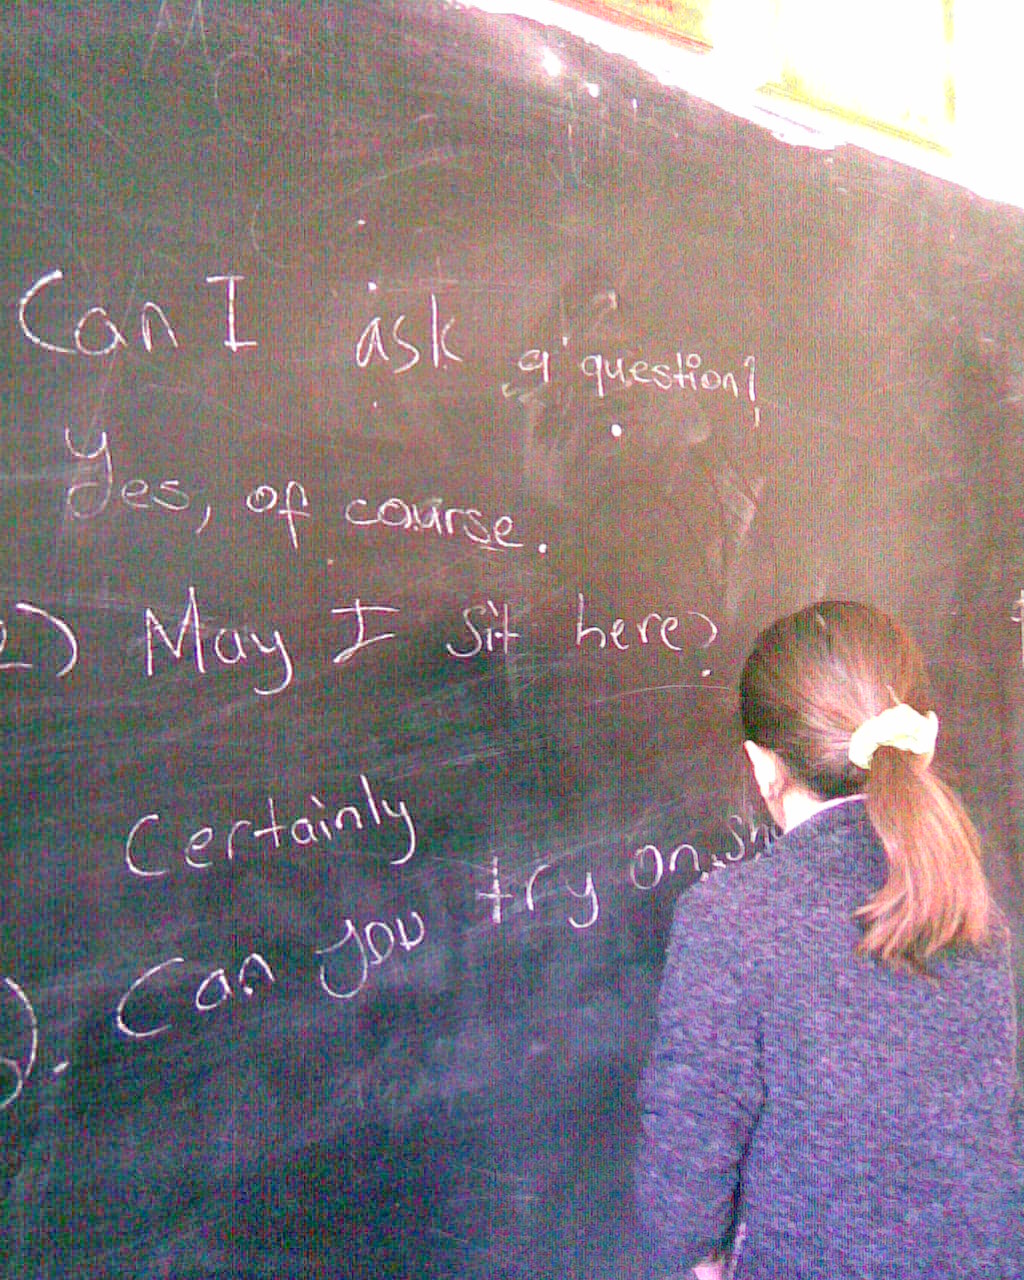 Can I ask a question?
Yes, of course.
2) May I sit here?
Certainly
). Can you try on